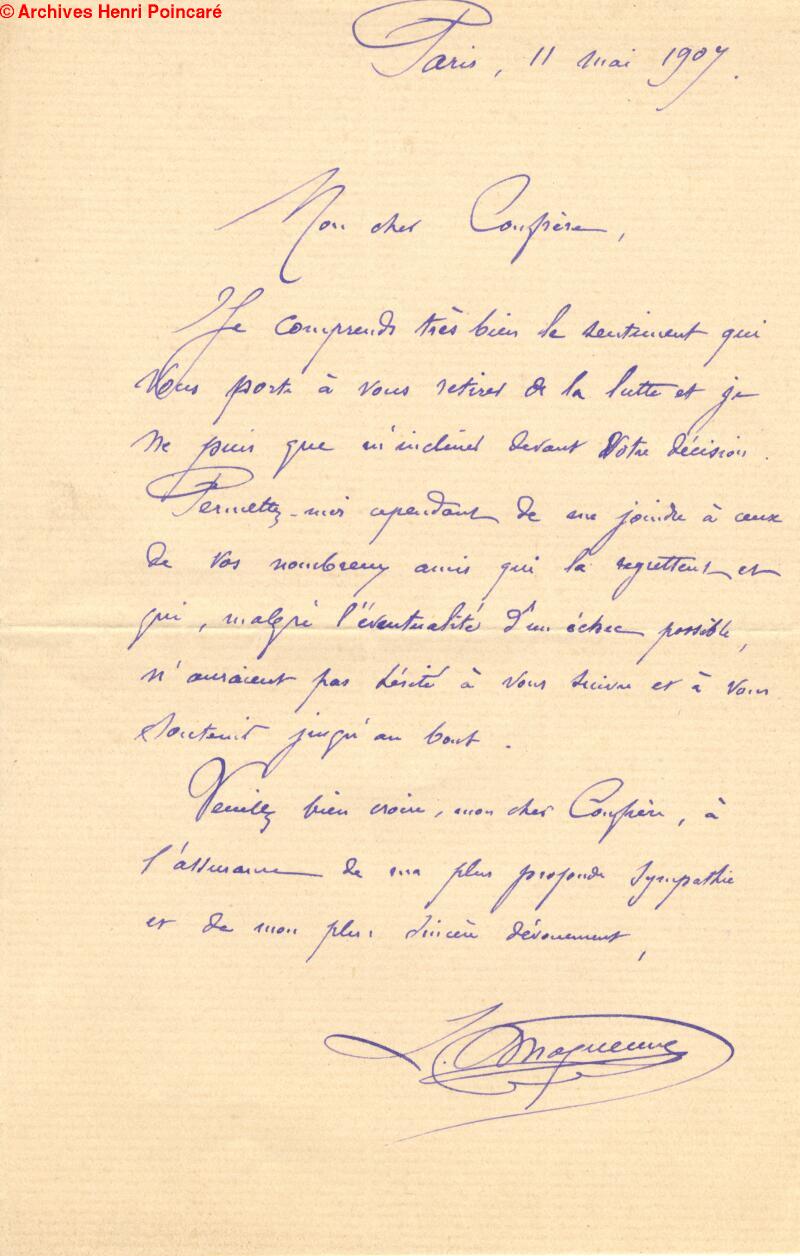 © Archives Henri Poincaré
Paris, 11 mai 1907.
Mon cher Confrère,
Je comprends très bien le sentiment qui
Vous porte à vous retirer de la lutte et je
ne puis que m'incliner devant Votre décision.
Permettez-moi cependant de me joindre à ceux
de vos nombreux amis qui la regrettent et
qui, malgré l'éventualité d'un échec possible,
n'auraient pas hésité à vous suivre et à vous
soutenir jusqu'au bout.
Veuillez bien croire, mon cher Confrère, à
l'assurance de ma plus profonde sympathie
et de mon plus sincère dévouement,
L. Maquenne